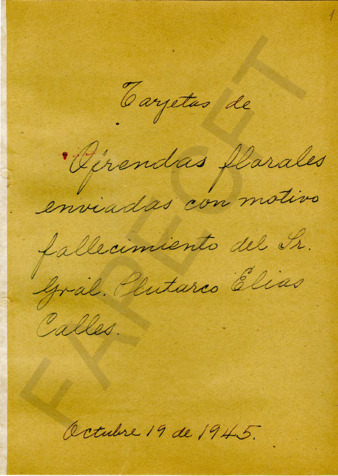 1
Tarjetas de
Ofrendas florales
enviadas con motivo
fallecimiento del Sr.
Gral. Plutarco Elias
Calles.
Octubre 19 de 1945.
FAPECFT